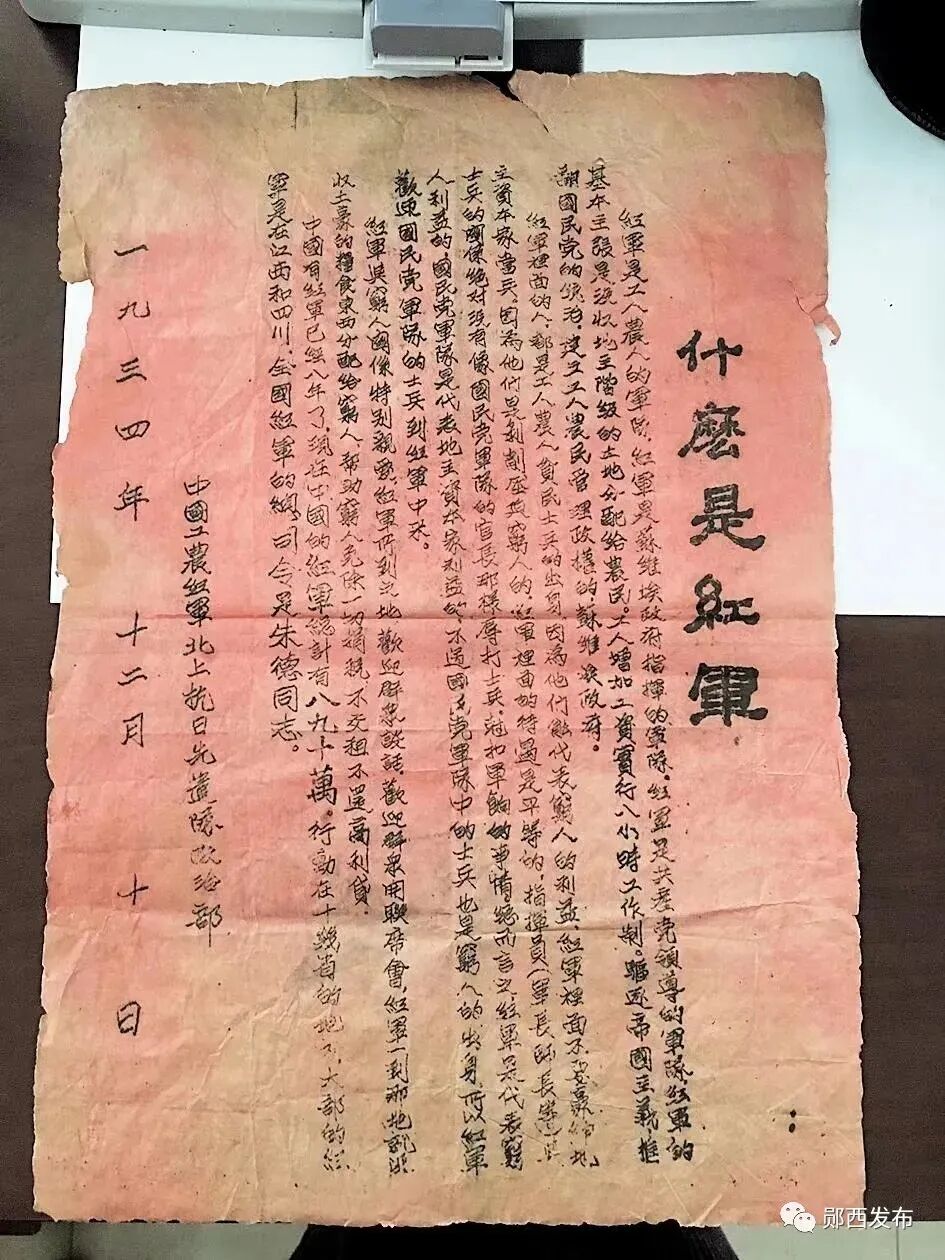 什麽是紅軍
紅軍是工人農人的軍隊，紅軍是蘇維埃政府指揮的軍隊，紅軍是共產党領導的軍隊，紅軍的
基本主張是沒收地主階級的土地分配給農民。工人增加工資實行八小時工作制。驅逐帝國主義，推
翻國民党的統治，建立工人農民管理政權的，蘇維埃政府。
紅軍裡面的人，都是工人農人貧民士兵的出身，因為他們能代表窮人的利益，紅軍裡面不要豪紳地
主資本家當兵，因為他們是剝削壓迫窮人的，紅軍裡面的待遇是平等的，指揮員（軍長師長
士兵的関係絕对沒有像國民党軍隊的官長那樣辱打士兵，尅扣軍餉的事情總而言之紅軍是代表窮
人利益的，國民党軍隊是代表地主資本家利益的，不過國民党軍隊中的士兵也是窮人的出身，所以紅軍
歡迎國民党軍隊的士兵到紅軍中來。
紅軍與窮人関係特别親密，紅軍所到之地歡迎群眾談話，歡迎群眾開聯席會，紅軍一到那地就沒
收土豪的糧食東西分配給窮人，帮助窮人免除一切捐稅不交租不還高利貸。
中國有紅軍已經八年了，現在中國的紅軍總計有八九十萬。行動在十幾省的地下，大部的紅
軍是在江西和四川，全國紅軍的總司令是朱德同志。
中國工農紅軍北上抗日先遣隊政治部
一九三四年十二月十日
郧西发布